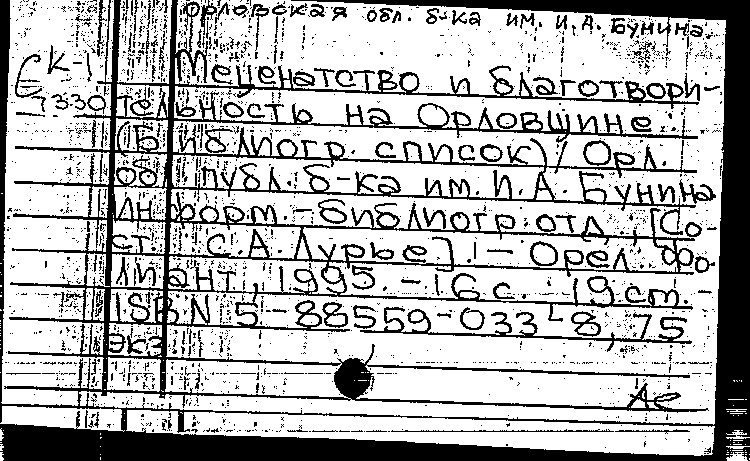 Орловская обл. б-ка им. И.А. Бунина.
К-1 Меценатство и благотвори-
7330 тельность на Орловщине:
(Библиогр. список) / Орл.
обл. публ. б-ка им. И.А. Бунина
Информ.-библиогр. отд.; [Со-
ст. С.А. Лурье]. - Орел: Фо-
лиант, 1995. - 16 с.; 19 cm. -
ISBN 5-88559-033-8, 75
экз